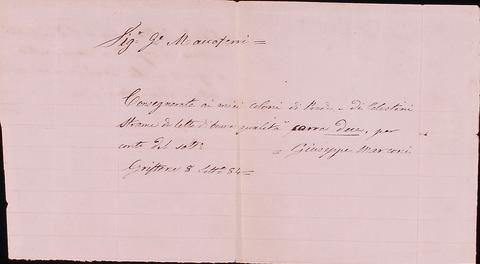 Sig.r G.e
Consegnerete ai miei coloni di Prade e di Celestini
strame da letto di buona qualità carra dieci, per
conto del sott.o = Giuseppe Marconi
Griffone 8 84=